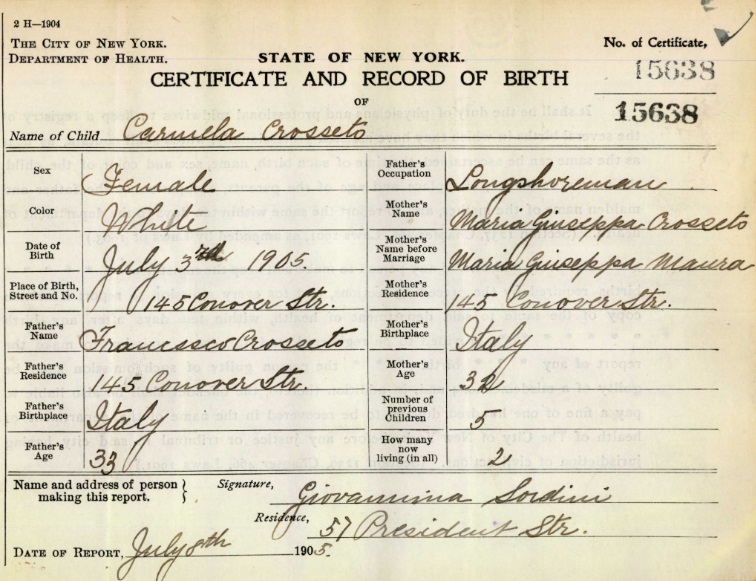 2 H—1904
THE CITY OF NEW YORK.
DEPARTMENT OF HEALTH.
STATE OF NEW YORK.
No. of Certificate,
15638
15638
CERTIFICATE AND RECORD OF BIRTH
OF
Name of Child Carmela Crosseto
Sex Female
Father's Occupation Longshoreman
Color White
Mother's Name Maria Giuseppa Crosseto
Date of Birth July 3rd 1905.
Mother's Name before Marriage Maria Giuseppa Maura
Place of Birth, Street and No. 145 Conover Str.
Mother's Residence 145 Conover Str.
Father's Name Francssco Crosseto
Mother's Birthplace Italy
Father's Residence 145 Conover Str.
Mother's Age 32
Father's Birthplace Italy
Number of previous Children 5
Father's Age 33
How many now living (in all) 2
Name and address of person making this report.
Signature, Giovannina Sordini
Residence, 57 President Str.
DATE OF REPORT, July 8th 1905.